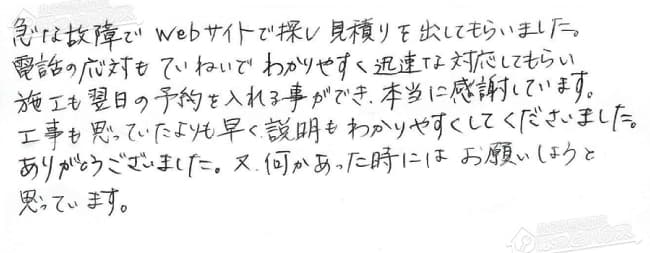 急な故障でWebサイトで探し見積りを出してもらいました。
電話の応対もていねいでわかりやすく迅速な対応してもらい
施工も翌日の予約を入れる事ができ、本当に感謝しています。
工事も思っていたよりも早く、説明もわかりやすくしてくださいました。
ありがとうございました。又、何かあった時にはお願いしようと
思っています。